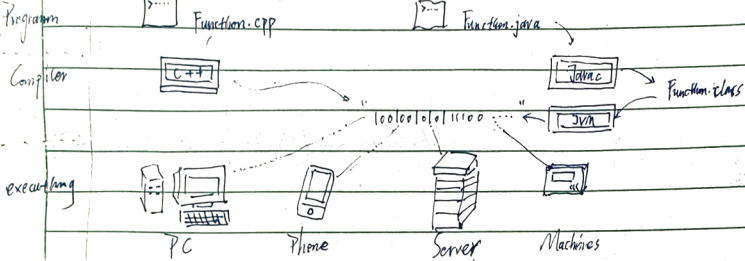 Programm
>....
Function.cpp
>....
Function.java
Compiler
C++
Javac
Function.class
" 100100101011100 .... "
JVM
executing
PC
Phone
Server
Machines